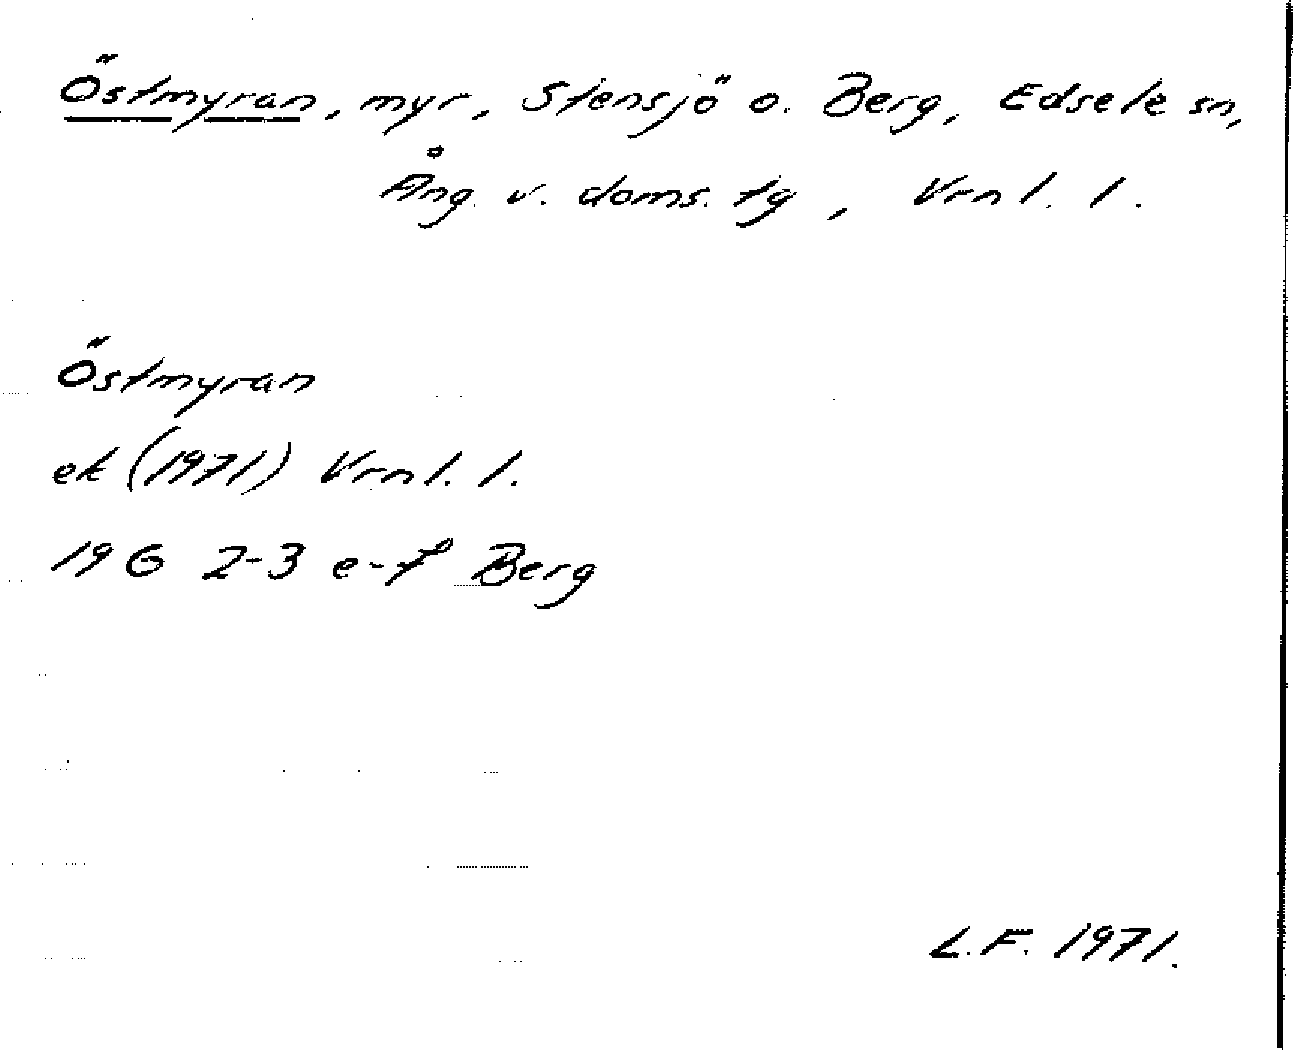 Östmyran, myr, Stensjö o. Berg, Edsele sn,
Ång. v. doms. tg, Vrnl. l.
Östmyran
ek (1971) Vrnl. l.
19G 2-3 e-f Berg
L.F. 1971.